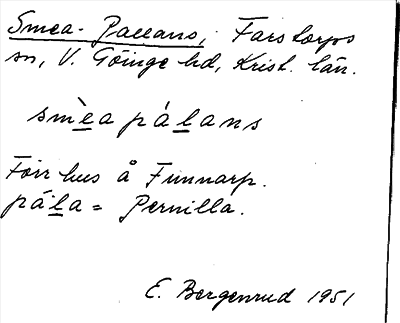 Smea-Pallans, Farstorps
sn, V. Göinge hd, Krist. län.
smèa pálans
Förr hus å Finnarp.
pála = Pernilla.
E. Bergenrud 1951